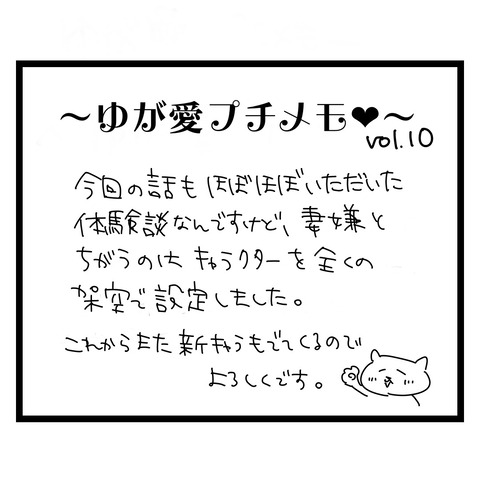 ～ゆが愛プチメモ❤～
vol.10
今回の話もほぼほぼいただいた
体験談なんですけど、妻嫌と
ちがうのはキャラクターを全くの
架空で設定しました。
これからまた新キャラもでてくるので
よろしくです。